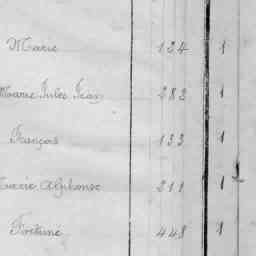 Marie 124 1
Marie Jules Jean 282 1
François 133 1
Lucie Alphonse 211 1
Fortuné 448 1